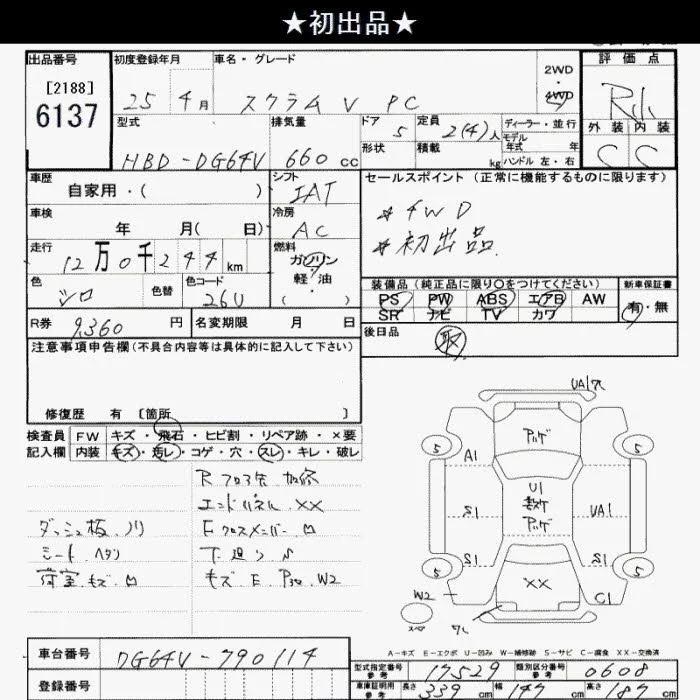 ★初出品★
出品番号 初度登録年月 車名・グレード 評価点
[2188]
6137
25 年 4 月 スクラム V PC 2WD・4WD
型式 排気量 ドア 定員 ディーラー・並行
5 2(4)人 モデル年式 年
外装 内装
HBD-DG64V 660 cc 形状 積載 kg ハンドル 左・右 C C
車歴 シフト セールスポイント (正常に機能するものに限ります)
自家用・( ) IAT
車検 冷房 ★ 4WD
年 月( 日) AC ★ 初出品
走行 燃料
12万0千244 km ガソリン
色 色替 色コード 軽・油 装備品 (純正品に限り○をつけてください) 新車保証書
シロ 26U ( ) PS PW ABS エアB AW 有・無
SR ナビ TV カワ
R券 9,360 円 名変期限 月 日 後日品
取
注意事項申告欄 (不具合内容等は具体的に記入して下さい)
修復歴 有 〔箇所 〕
検査員 FW キズ・飛石・ヒビ割・リペア跡・×要
記入欄 内装 キズ・汚レ・コゲ・穴・スレ・キレ・破レ
エンドパネル XX
ダッシュ板 ノリ
シート ヘタリ
荷室 キズ
UA1
5 5
A1
U1
S1 UA1
S1 S1
5 5
XX
W2 C1
スペア
A-キズ E-エクボ U-凹み W-補修跡 S-サビ C-腐食 XX-交換済
車台番号 DG64V-790114
登録番号
型式指定番号 参考 17529 類別区分番号 参考 0608
車庫証明用 参考 長さ 339 cm 幅 147 cm 高さ 187 cm